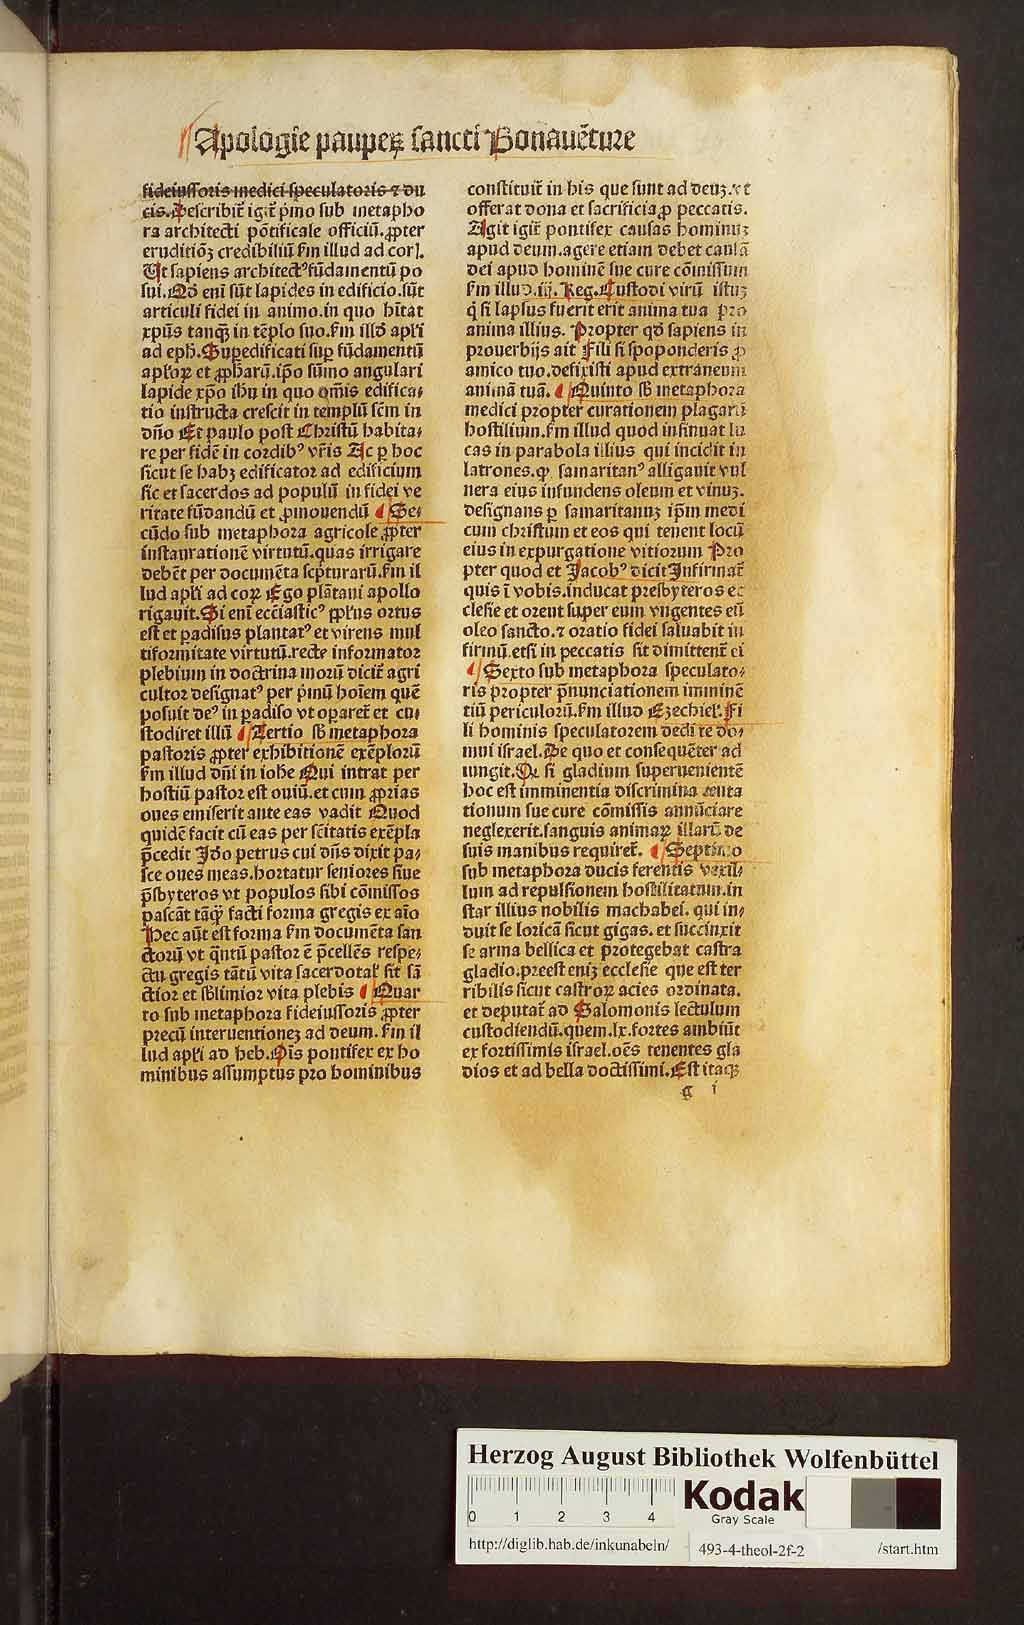 Apologie paupeꝝ sancti Bonauẽture
fideiussoris medici speculatoris ⁊ du
cis. Describit᷑ igit᷑ p̃mo sub metapho
ra architecti põtificale officiũ. ꝓpter
eruditiõꝫ credibiliũ ẜm illud ad corĩ.
Ut sapiens architectꝰ fũdamentũ po
sui. Qđ eni sũt lapides in edificio. sũt
articuli fidei in animo. in quo hĩtat
xpũs tanqꝫ in tẽplo suo. ẜm illđ apl̃i
ad eph̃. Suꝑedificati suꝑ fũdamentũ
apl̃oꝝ et ꝓph̃arũ. ip̃o sũmo angulari
lapide xp̃o ih̃u in quo om̃is edifica⸗
tio instructa crescit in templũ sc̃m in
dño Et paulo post Christũ habita⸗
re per fidẽ in cordibꝰ vr̃is Ac ꝑ hoc
sicut se habꝫ edificator ad edificium
sic et sacerdos ad populũ in fidei ve
ritate fũdandũ et ꝓmouendũ ¶ Se⸗
cũdo sub metaphora agricole ꝓpter
instaurationẽ virtutũ. quas irrigare
debẽt per documẽta sc̃pturarũ. ẜm il
lud apl̃i ad coꝝ Ego plãtaui apollo
rigauit. Si enĩ eccl̃iasticꝰ ppl̃us ortus
est et ꝑadisus plantatꝰ et virens mul
tiformitate virtutũ. recte informator
plebium in doctrina morũ dicit᷑ agri
cultor designatꝰ per p̃mũ hoĩem quẽ
posuit deꝰ in ꝑadiso vt operet᷑ et cu⸗
stodiret illũ ¶ Tertio sb̃ metaphora
pastoris ꝓpter exhibitionẽ exẽplorũ
ẜm illud dñi in ioh̃e Qui intrat per
hostiũ pastor est ouiũ. et cum ꝓprias
oues emiserit ante eas vadit Quod
quidẽ facit cũ eas per sc̃itatis exẽpla
p̃cedit Iđo petrus cui dñs dixit pa⸗
sce oues meas. hortatur seniores siue
p̃sbyteros vt populos sibi cõmissos
pascãt tãqꝫ facti forma gregis ex aĩo
Hec aũt est forma ẜm documẽta san
ctorũ vt q̃ntũ pastor ẽ p̃cellẽs respe⸗
ctu gregis tãtũ vita sacerdotal̃ sit sã
ctior et sb̃limior vita plebis ¶ Quar
to sub metaphora fideiussoris ꝓpter
precũ interuentionẽꝫ ad deum. ẜm il
lud apl̃i ad heb. Ois pontifex ex ho
minibus assumptus pro hominibus
constituit᷑ in his que sunt ad deuꝫ. vt
offerat dona et sacrificia ꝓ peccatis.
Agit igit᷑ pontifex causas hominuꝫ
apud deum. agere etiam debet causã
dei apud hominẽ sue cure cõmissum
ẜm illud. iij. Reg. Custodi virũ istuꝫ
q̃ si lapsus fuerit erit anima tua pro
anima illius. Propter qđ sapiens in
prouerbijs ait Fili si spoponderis ꝓ
amico tuo. defixisti apud extraneum
animã tuã. ¶ Quinto sb̃ metaphora
medici propter curationem plagarũ
hostilium. ẜm illud quod insinuat lu
cas in parabola illius qui incidit in
latrones. ꝙ samaritanꝰ alligauit vul
nera eius infundens oleum et vinuꝫ.
designans ꝑ samaritanuꝫ ip̃m medi
cum christum et eos qui tenent locũ
eius in expurgatione vitiorum Pro
pter quod et Jacobꝰ dicit Infirmat᷑
quis ĩ vobis. inducat presbyteros ec
clesie et orent super eum vngentes eũ
oleo sancto. ⁊ oratio fidei saluabit in
firmũ. etsi in peccatis sit dimittent᷑ ei
¶ Sexto sub metaphora speculato⸗
ris propter p̃nunciationem imminẽ
tiũ periculorũ. ẜm illud Ezechiel̃. Fi
li hominis speculatorem dedi te do⸗
mui israel. De quo et consequẽter ad
iungit. Qr si gladium superuenientẽ
hoc est imminentia discrimina tenta
tionum sue cure cõmissis annũciare
neglexerit. sanguis animaꝝ illarũ de
suis manibus requiret᷑. ¶ Septimo
sub metaphora ducis ferentis vexil⸗
lum ad repulsionem hostilitatum. in
star illius nobilis machabei. qui in⸗
duit se loricã sicut gigas. et succinxit
se arma bellica et protegebat castra
gladio. preest enīꝫ ecclesie que est ter
ribilis sicut castroꝝ acies ordinata.
et deputat᷑ ad Salomonis lectulum
custodiendũ. quem. lx. fortes ambiũt
ex fortissimis israel. oẽs tenentes gla
dios et ad bella doctissimi. Est itaqꝫ
g i
Herzog August Bibliothek Wolfenbüttel
0 1 2 3 4
Kodak
Gray Scale
http://diglib.hab.de/inkunabeln/ 493-4-theol-2f-2 /start.htm